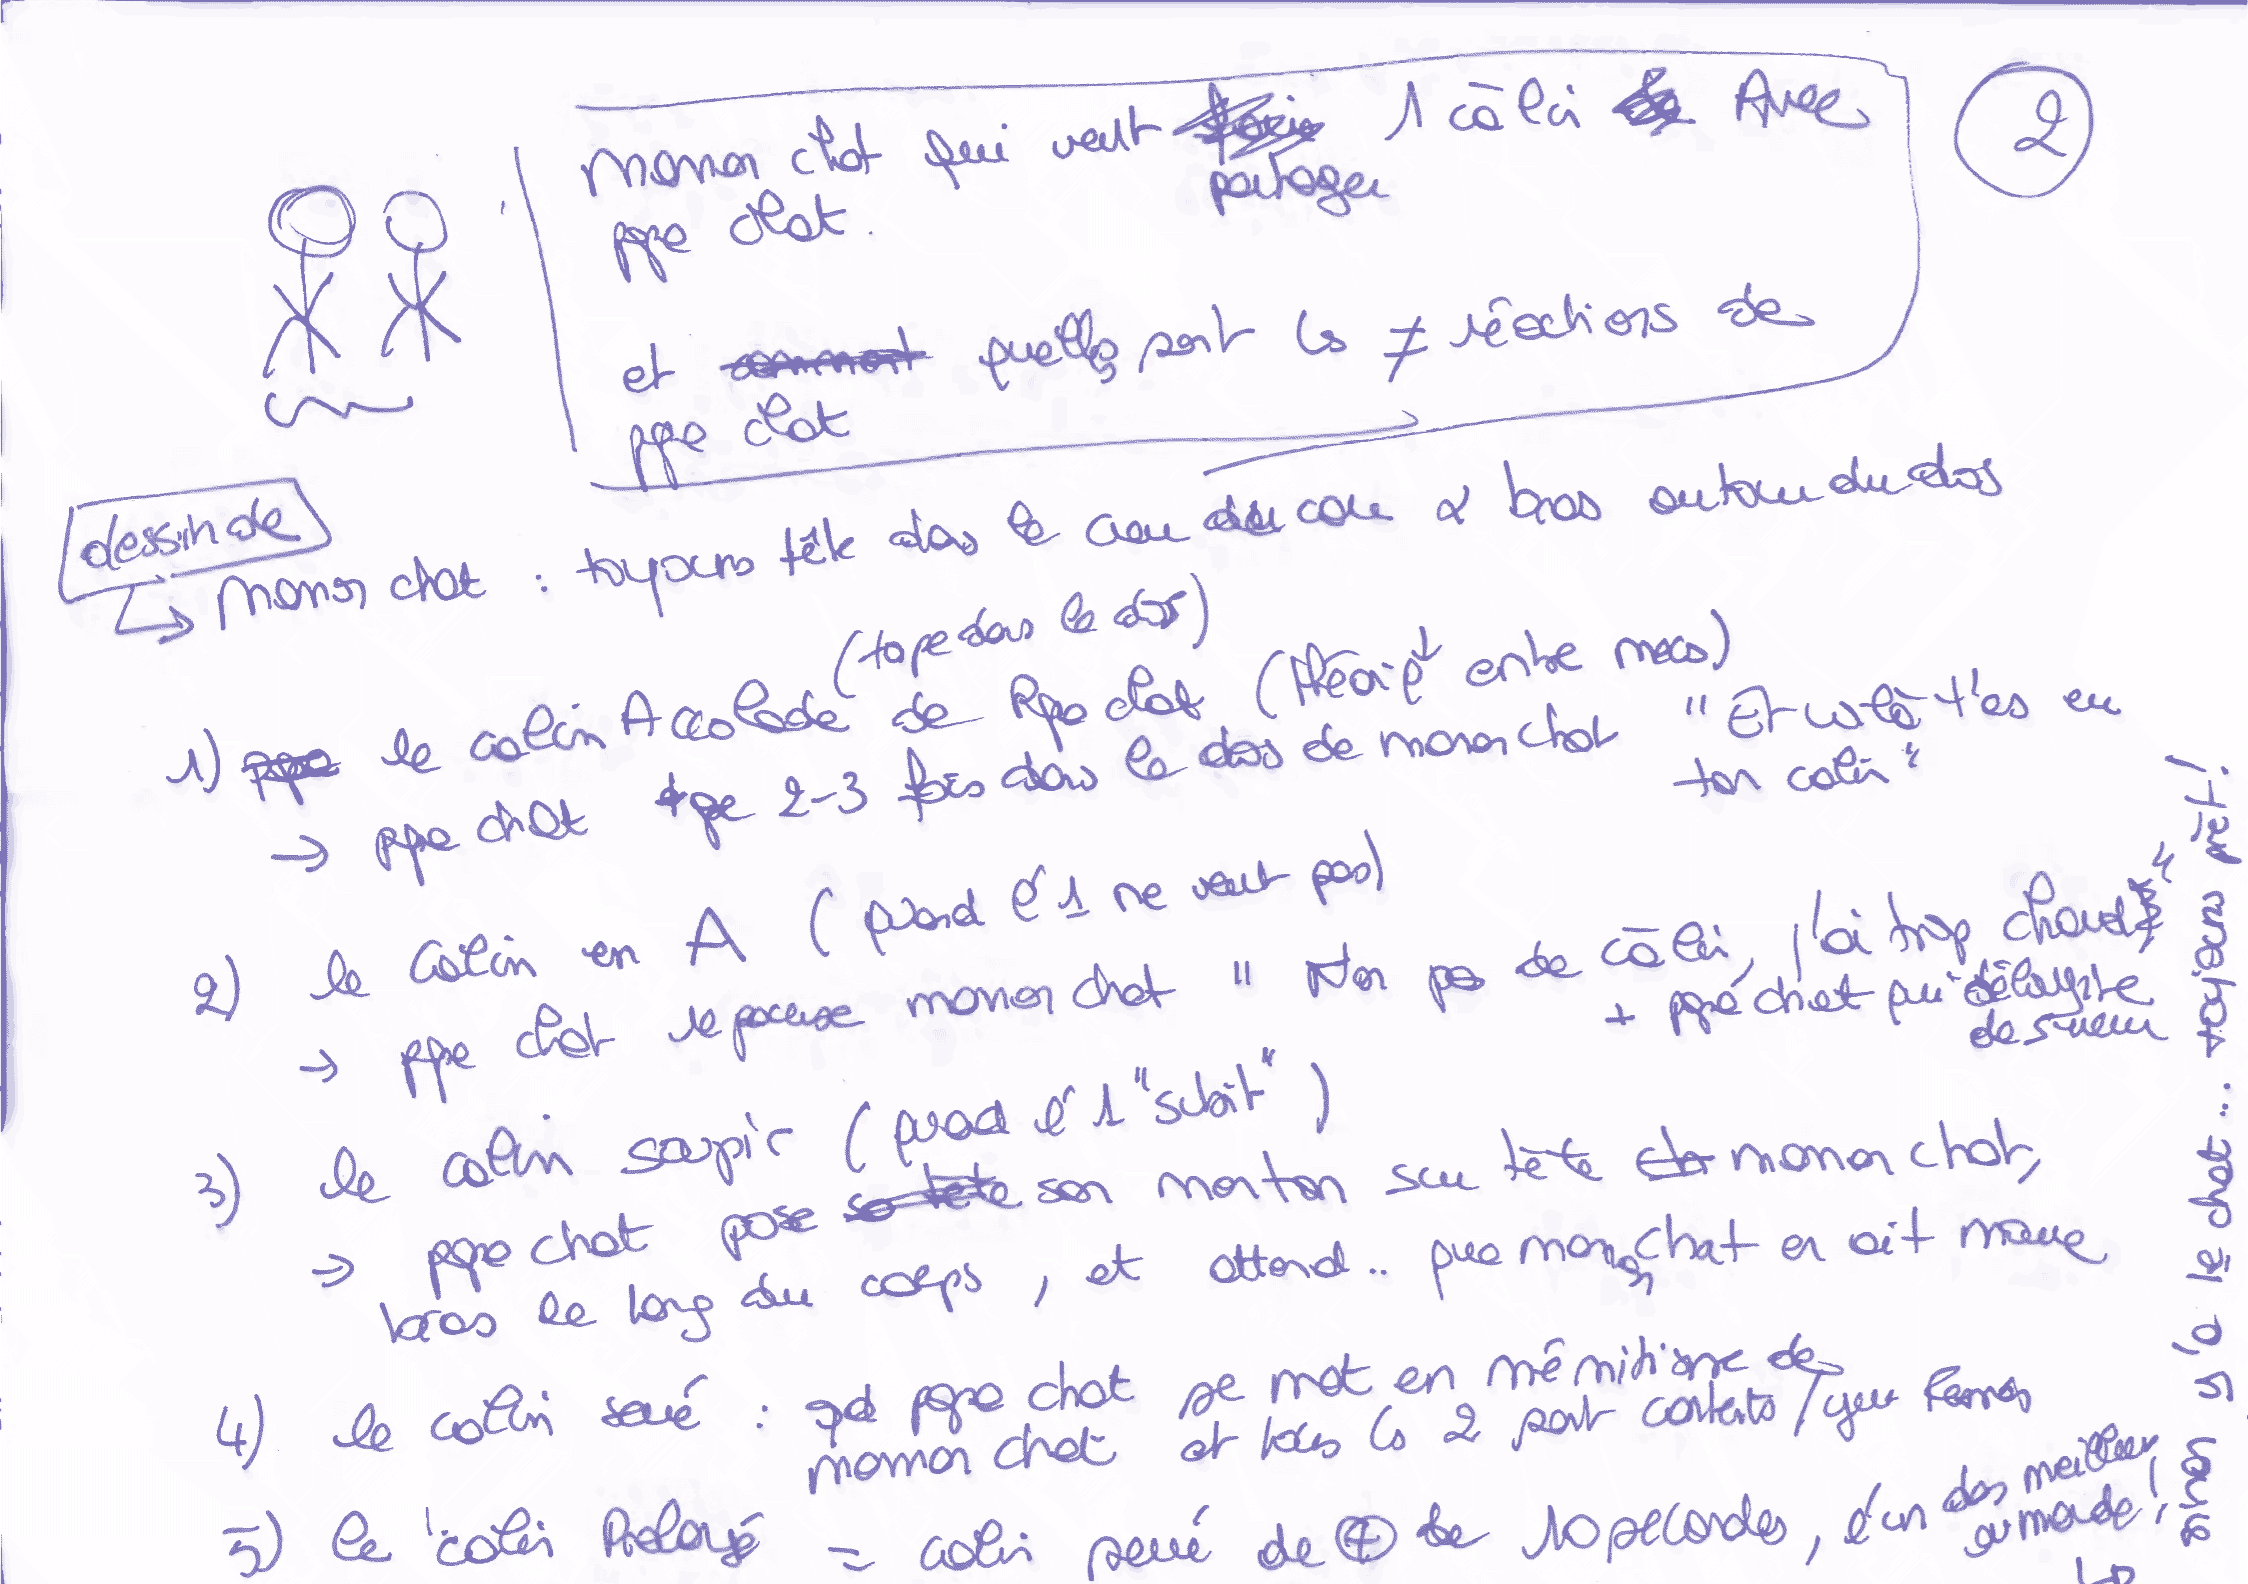 2
Maman chat qui veut partager 1 câlin Avec
ppe chat.
et quelles sont les ≠ réactions de
ppe chat
dessin de
→ Maman chat : toujours tête dans le creu du cou & bras autour du dos
(tape dans le dos)
1) le calin Accolade de Ppe chat (théorie entre mecs)
→ ppe chat tape 2-3 fois dans le dos de maman chat "Et voilà t'as eu
ton calin"
2) le Calin en A (quand l'1 ne veut pas)
→ ppe chat repousse maman chat " Non pas de câlin, j'ai trop chaud"
+ ppe chat qui dégouline
de sueur
3) le calin soupir (quand l'1 "subit")
→ ppe chat pose son menton sur tête maman chat,
bras le long du corps, et attend.. que maman chat en ait marre
4) le calin serré : qd ppe chat se met en mimétisme de
maman chat et tous les 2 sont contents / yeux fermés
5) le calin Prolongé = calin serré de + de 10 secondes, l'un des meilleurs
au monde !
sinon y'a le chat... toujours prêt !